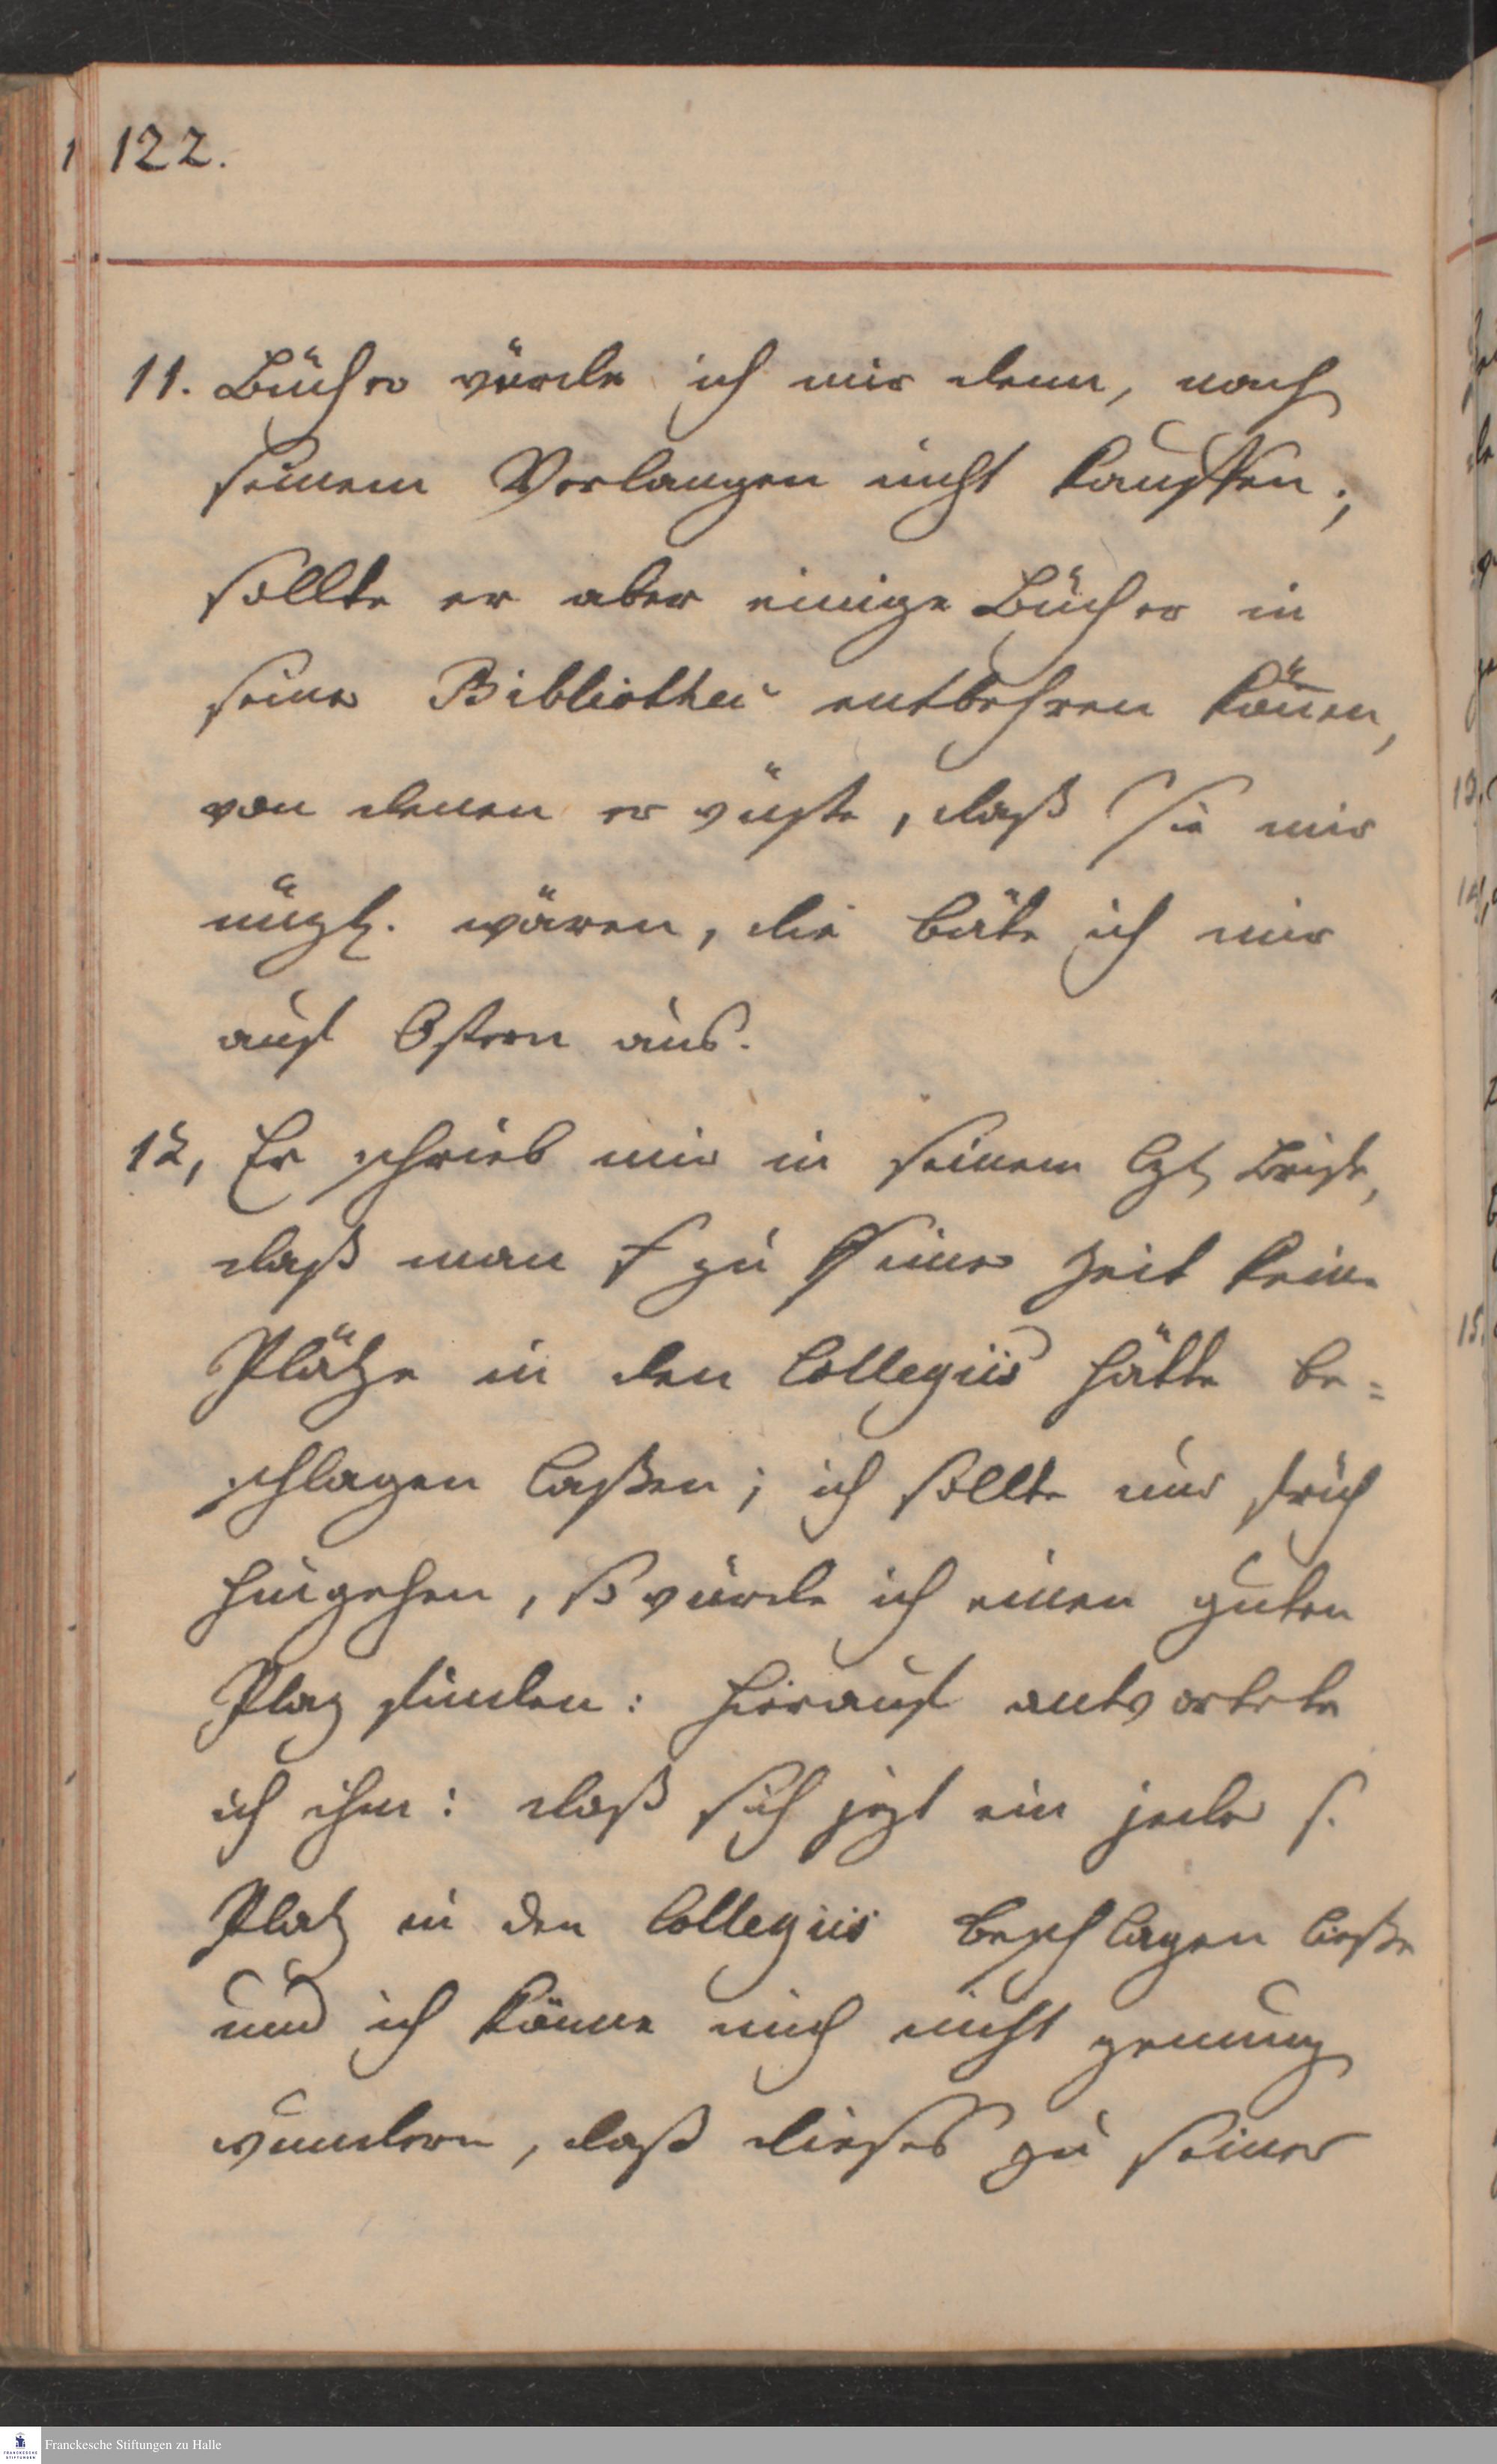 122.
11. Bücher würde ich mir denn, nach
seinem Verlangen nicht kauffen;
sollte er aber einige Bücher in
seiner Bibliothec entbehren können,
von denen er wüste, daß Sie mir
nüzl. wären, die bäte ich mir
auf Ostern aus.
12, Er schrieb mir in seinem lzt Briefe,
daß man zu Seiner Zeit keine
Plätze in den Collegiis hätte be=
schlagen laßen; ich sollte nur früh
hingehen, so würde ich einen guten
Plaz finden: hierauf antwortete
ich ihm: daß sich jezt ein jeder s.
Platz in den Collegiis beschlagen ließe
und ich könne mich nicht genung
wundern, daß dieses zu seiner
Franckesche Stiftungen zu Halle